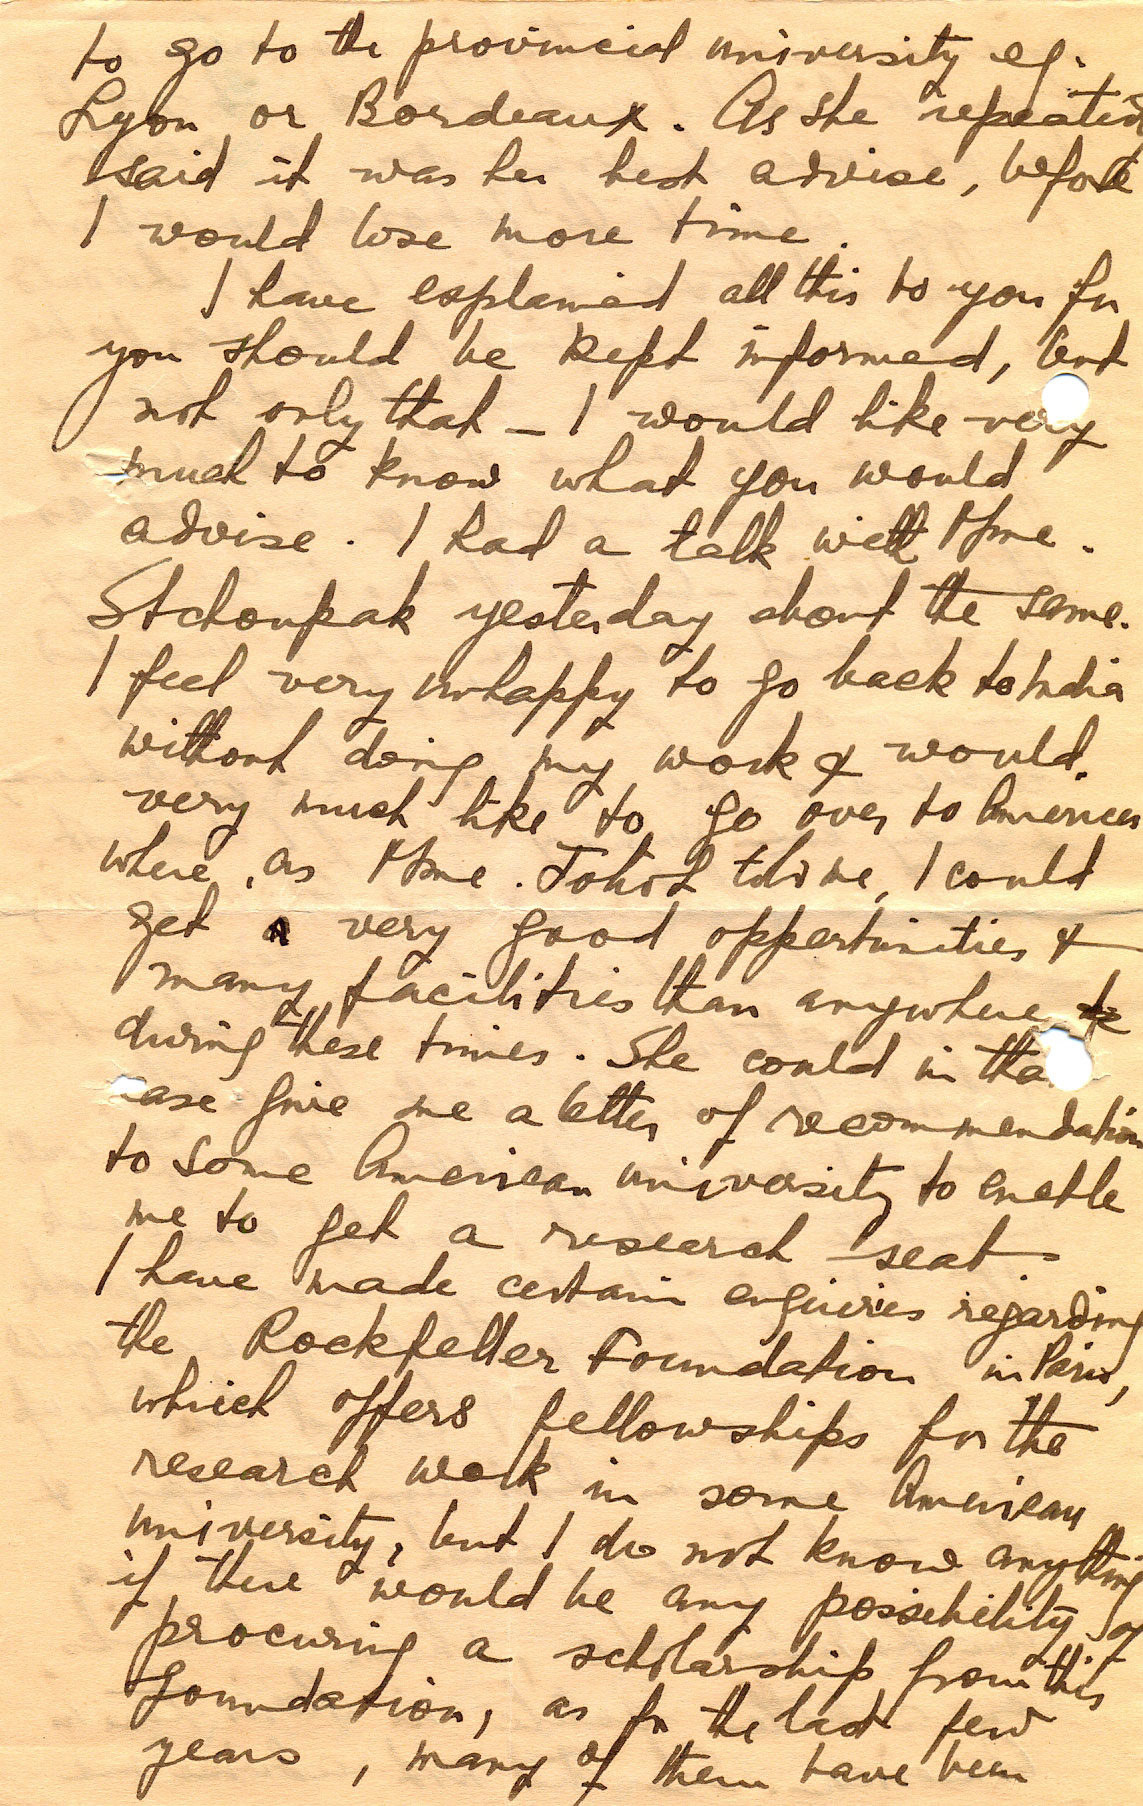 to go to the provincial university eg.
Lyon or Bordeaux. As she repeated
said it was her best advise, before
I would lose more time.
I have explained all this to you for
you should be kept informed, but
not only that – I would like very
much to know what you would
advise. I had a talk with Mme.
Stchoupak yesterday about the same.
I feel very unhappy to go back to India
without doing my work & would
very much like to go over to America
where, as Mme. told me, I could
get a very good oppertunities &
many facilities than anywhere
during these times. She could in that
case give me a letter of recommendation
to some American university to enable
me to get a research seat.
I have made certain enquiries regarding
the Rockfeller Foundation in Paris,
which offers fellowships for the
research work in some American
university, but I do not know anything
if there would be any possibility of
procuring a scholarship from this
foundation, as for the last few
years, many of them have been